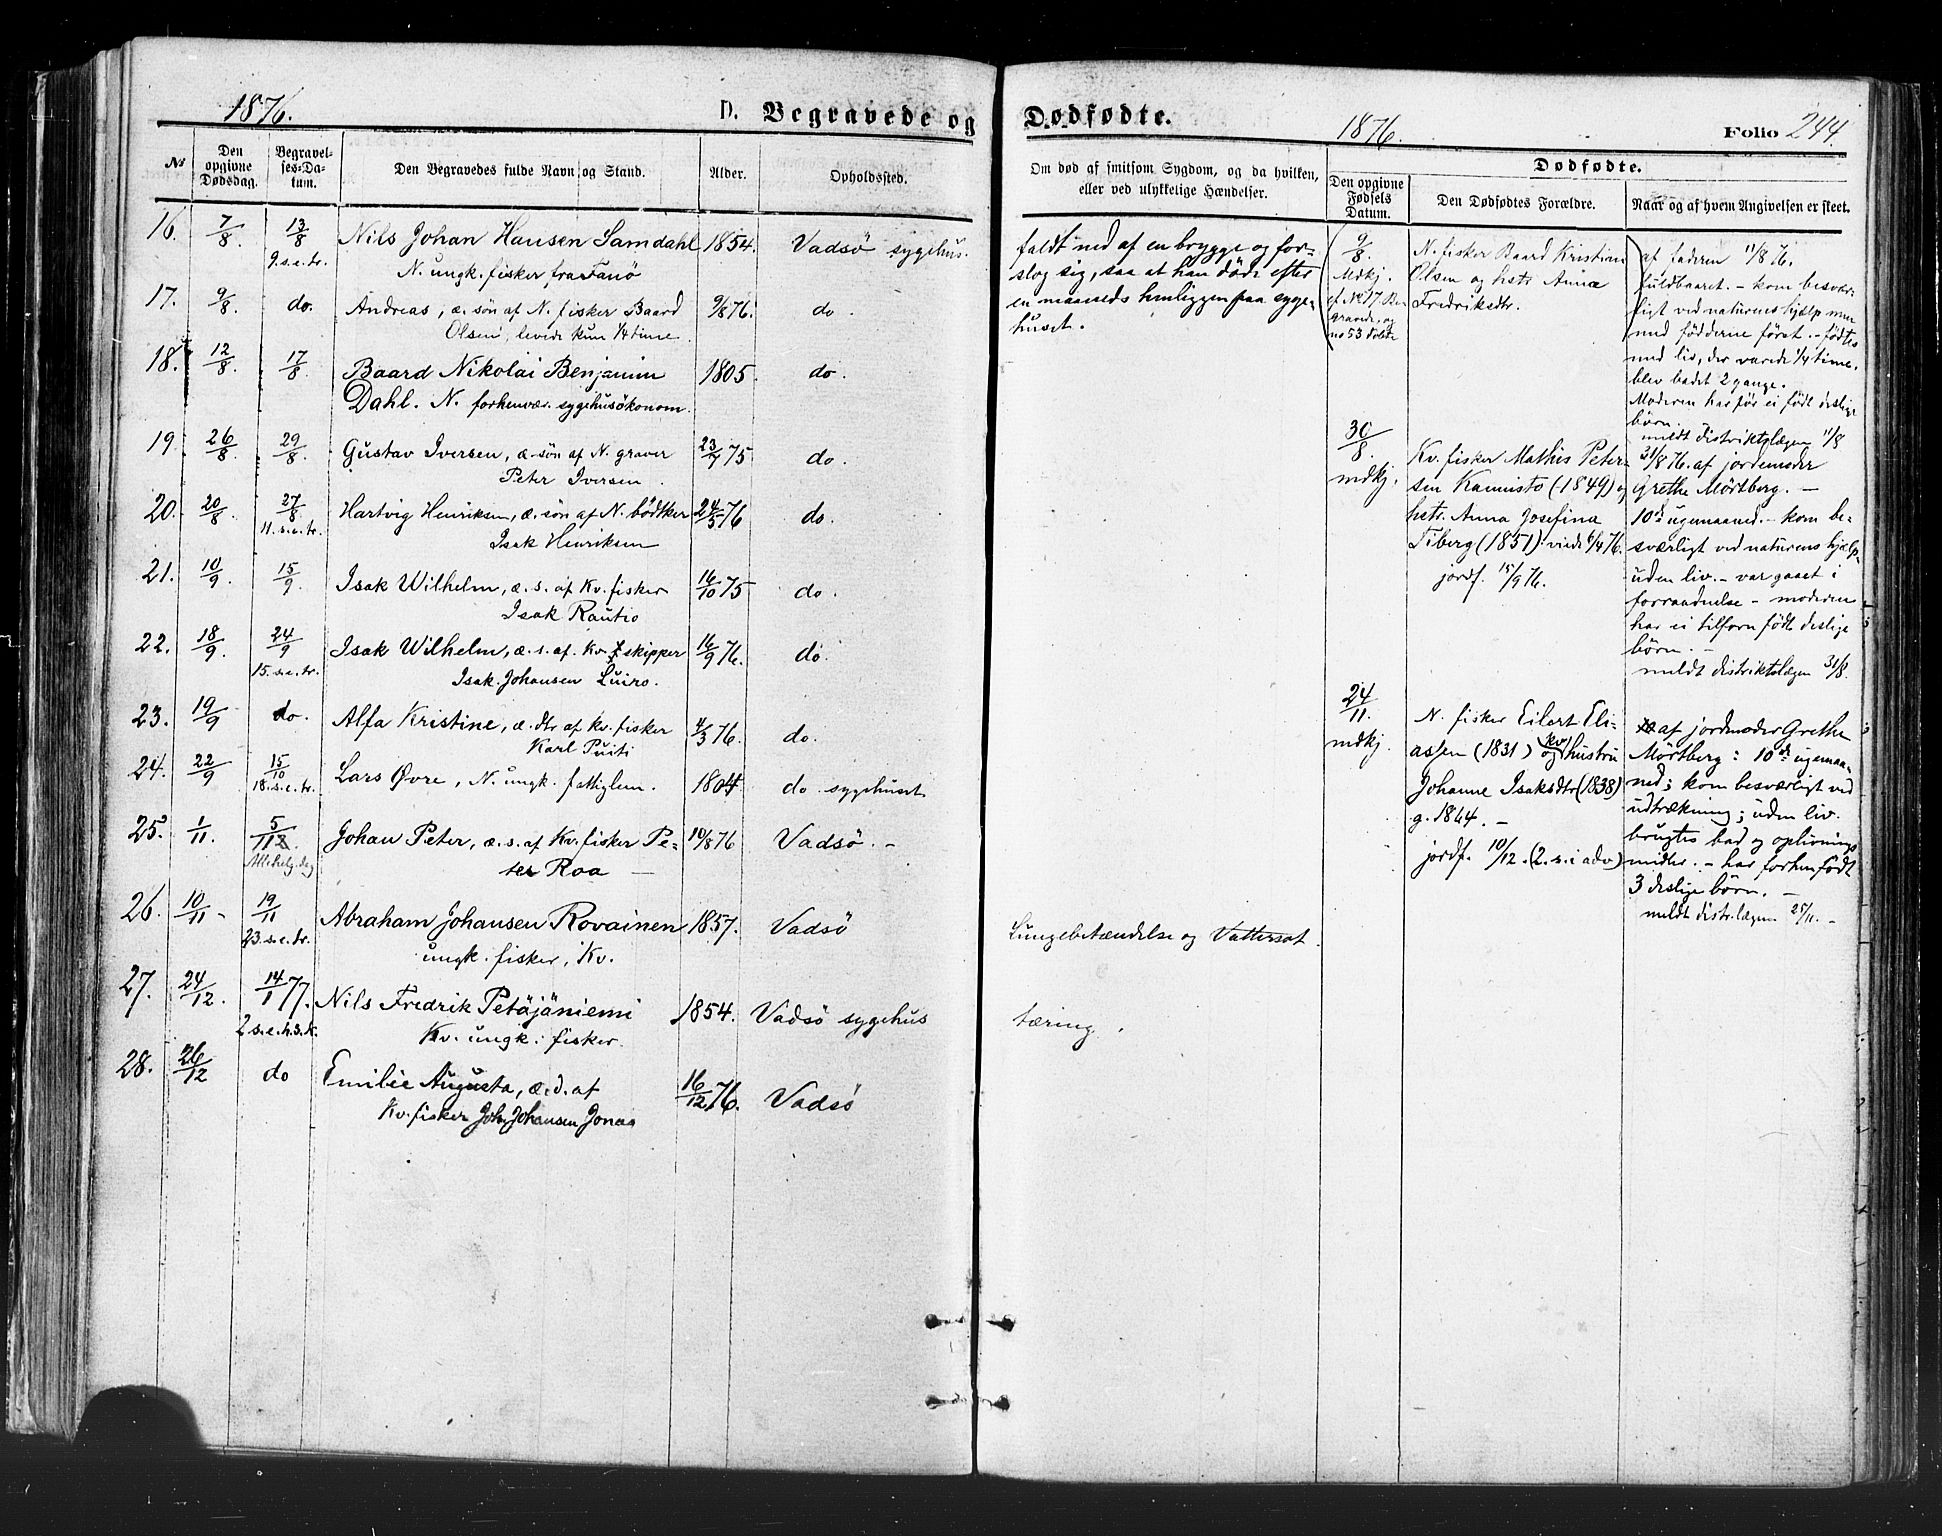 1876.
D. Begravede og
Nº
Den opgivne Dødsdag.
Begravelses-Datum.
Den Begravedes fulde Navn og Stand.
Alder.
Opholdssted.
16. 7/8 13/8 Nils Johan Hansen Samdahl 1854. Vadsö sygehus.
9.s.e.tr. N. ungk. fisker fra Fanö
17. 9/8. do. Andreas, æ. sön af N. fisker Baard 9/8 76. do.
Olsen, levede kun 1/4 time.
18. 12/8. 17/8 Baard Nikolai Benjamin 1805. do.
Dahl. N. forhenvær. sygehusökonom.
19. 26/8 29/8. Gustav Iversen, æ. sön af N. graver 23/7 75 do.
Peter Iversen.
20. 20/8. 27/8 Hartvig Henriksen, æ. sön af N. bödtker 24/5 76 do.
11.s.e.tr. Isak Henriksen
21. 10/9. 15/9. Isak Wilhelm, æ. s. af Kv. fisker 16/10 75 do.
Isak Rautio
22. 18/9. 24/9 Isak Wilhelm, æ. s. af. Kv. skipper 16/9 76. do.
15.s.e.tr. Isak Johansen Luiro.
23. 19/9 do. Alfa Kristine, æ. dtr af kv. fisker 4/3 76. do.
Karl Puiti
24. 22/9 15/10 Lars Øvre, N. ungk. fattiglem. 1804 do sygehuset
18.s.e.tr.
25. 1/11. 5/11 Johan Peter, æ. s. af Kv. fisker Pe- 10/8 76 Vadsö. -
Alleh.dag ter Roa —
26. 10/11 - 19/11 Abraham Johansen Rovainen 1857. Vadsö
23.s.e.tr. ungk. fisker, Kv.
27. 24/12. 14/1 77. Nils Fredrik Petäjäniemi 1854. Vadsö sygehus
2 s.e.h.3.k. Kv. ungk. fisker.
28. 26/12 do Emilie Augusta, æ. d. af 16/12 76. Vadsö
Kv. fisker Joh. Johansen Jonas
Dødfødte.
1876.
Folio 244.
Om død af smitsom Sygdom, og da hvilken,
eller ved ulykkelige Hændelser.
Dødfødte.
Den opgivne Fødsels Datum.
Den Dødfødtes Forældre.
Naar og af hvem Angivelsen er skeet.
faldt ned af en brygge og for-
slog sig, saa at han döde efter
en maaneds henliggen paa syge-
huset.
Lungebetændelse og Vattersot.
tæring.
9/8.
Mdkj.
cf. No 17 Be
gravde, og
no 53 döbte
N. fisker Baard Kristian
Olsen og hstr Anna
Fredriksdtr.
af faderen 11/8 76.
fuldbaaret. - kom besvær-
ligt ved naturens hjælp men
med födderne först. - födtes
med liv, der varede 1/4 time.
blev badet 2 gange.
Moderen har för ei födt deslige
börn.
meldt distriktslægen 11/8
30/8.
mdkj.
Kv. fisker Mathis Peter-
sen Kannisto (1849) og
hstr. Anna Josefina
Tiberg (1851) viede 6/4 76.
jordf. 15/9 76.
31/8 76. af jordemoder
Grethe Mörtberg. -
10de ugemaaned. - kom be-
sværligt ved naturens hjælp,
uden liv. - var gaaet i
forraadnelse - moderen
har ei tilforn födt deslige
börn. -
meldt distriktslægen 31/8.
24/11.
mdkj.
N. fisker Eilert Eli-
assen (1831) og kv hustru
Johanne Isaksdtr (1838)
g. 1864. -
jordf. 10/12. (2. s. i adv)
af jordmoder Grethe
Mörtberg: 10de ugemaa-
ned; kom besværligt ved
udtrækning; uden liv.
brugtes bad og oplivnings
midler. - har forhen födt
3 deslige börn. -
meldt distr.lægen 25/11. -